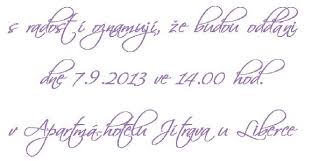 s radostí oznamují, že budou oddáni
dne 7.9.2013 ve 14.00 hod.
v Apartmá-hotelu Jítrava u Liberce